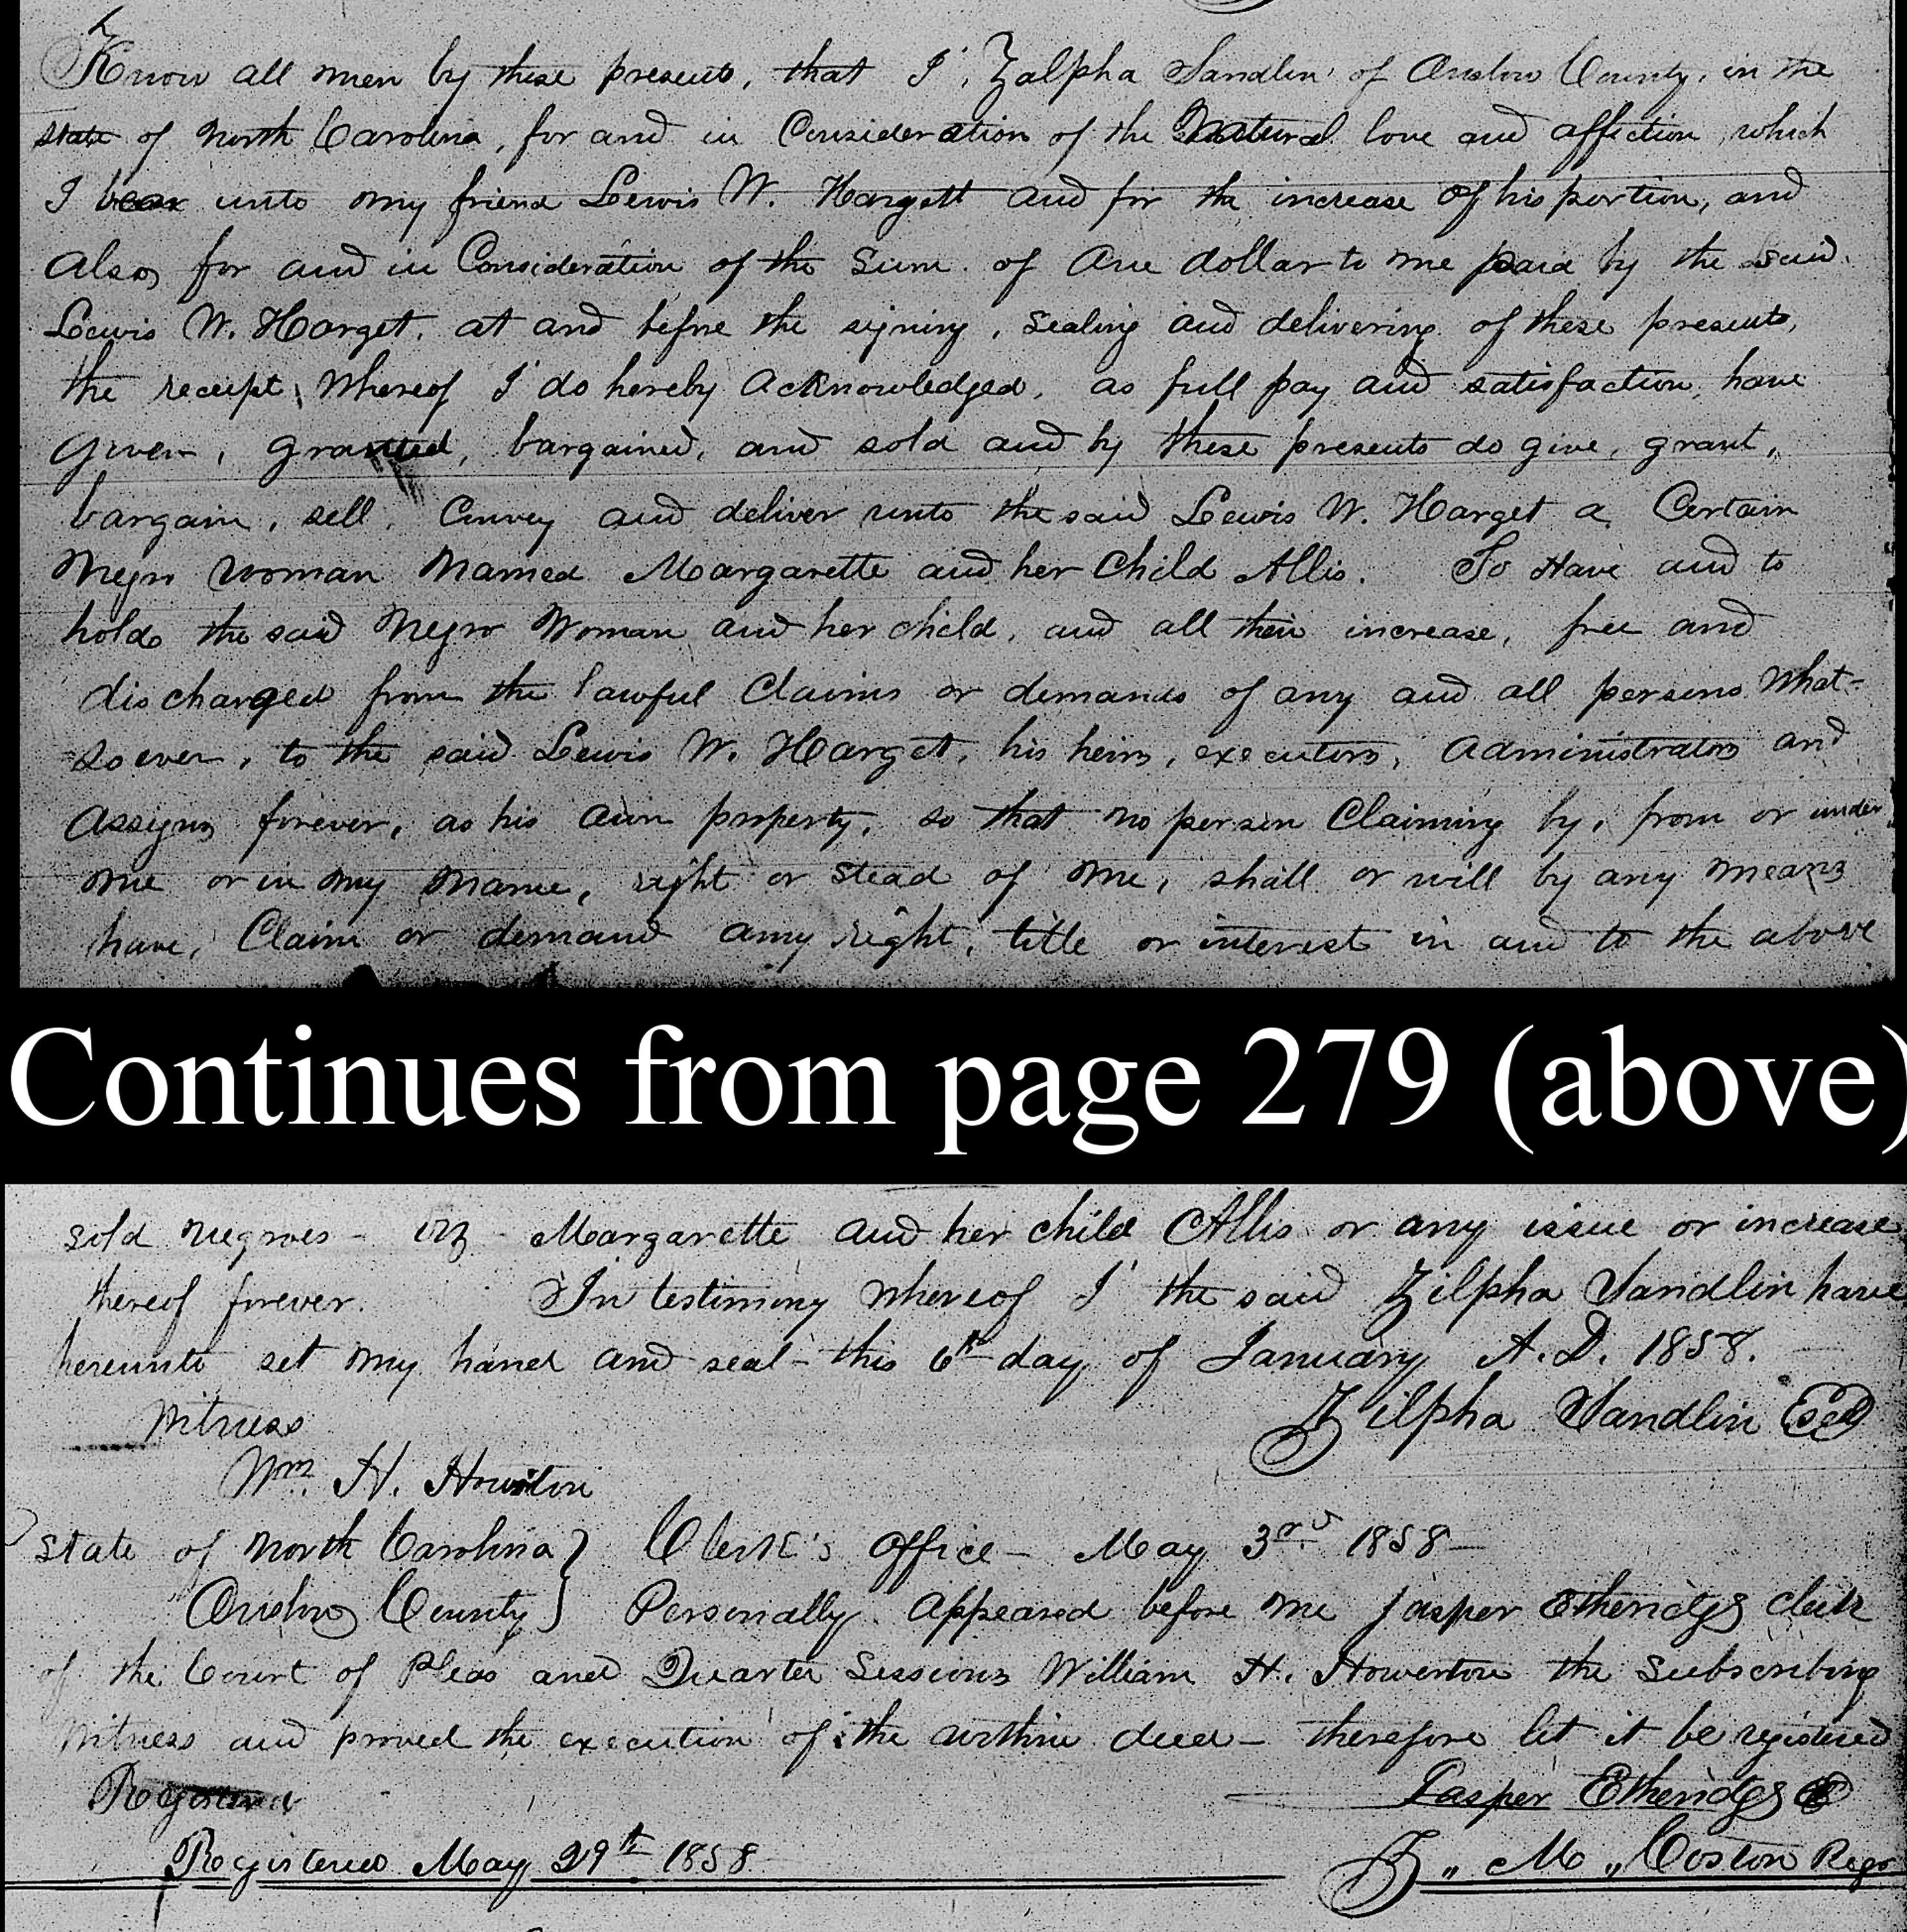 Know all men by these presents, that I, Zalpha Sandlin of Onslow County, in the
state of North Carolina, for and in Consideration of the Natural love and affection which
I bear unto my friend Lewis W. Hargett and for the increase of his portion, and
also, for and in Consideration of the Sum of One dollar to me paid by the said
Lewis W. Harget, at and before the signing, sealing and delivering of these presents,
the receipt whereof I do hereby acknowledged, as full pay and satisfaction, have
given, granted, bargained, and sold and by these presents do give, grant,
bargain, sell, Convey and deliver unto the said Lewis W. Harget a Certain
Negro woman Named Margarette and her Child Allis. To Have and to
hold the said Negro Woman and her child, and all their increase, free and
discharged from the lawful Claims or demands of any and all persons What-
soever, to the said Lewis W. Harget, his heirs, executors, administrators and
assigns forever, as his own property, so that no person Claiming by, from or under
me or in my name, right or stead of me, shall or will by any means
have, Claim or demand any right, title or interest in and to the above
Continues from page 279 (above)
sold negroes - viz - Margarette and her child Allis or any issue or increase
thereof forever. In testimony whereof I the said Zilpha Sandlin have
hereunto set my hand and seal - this 6th day of January A.D. 1858.
Witness Zilpha Sandlin Seal
Wm. H. Howerton
State of North Carolina } Clerk's Office - May 3rd 1858 -
Onslow County } Personally appeared before me Jasper Etheridge clerk
of the Court of Pleas and Quarter Sessions William H. Howerton the Subscribing
Witness and proved the execution of the within deed - therefore let it be registered
Registered Jasper Etheridge
Registered May 29th 1858 M. Coston Regr